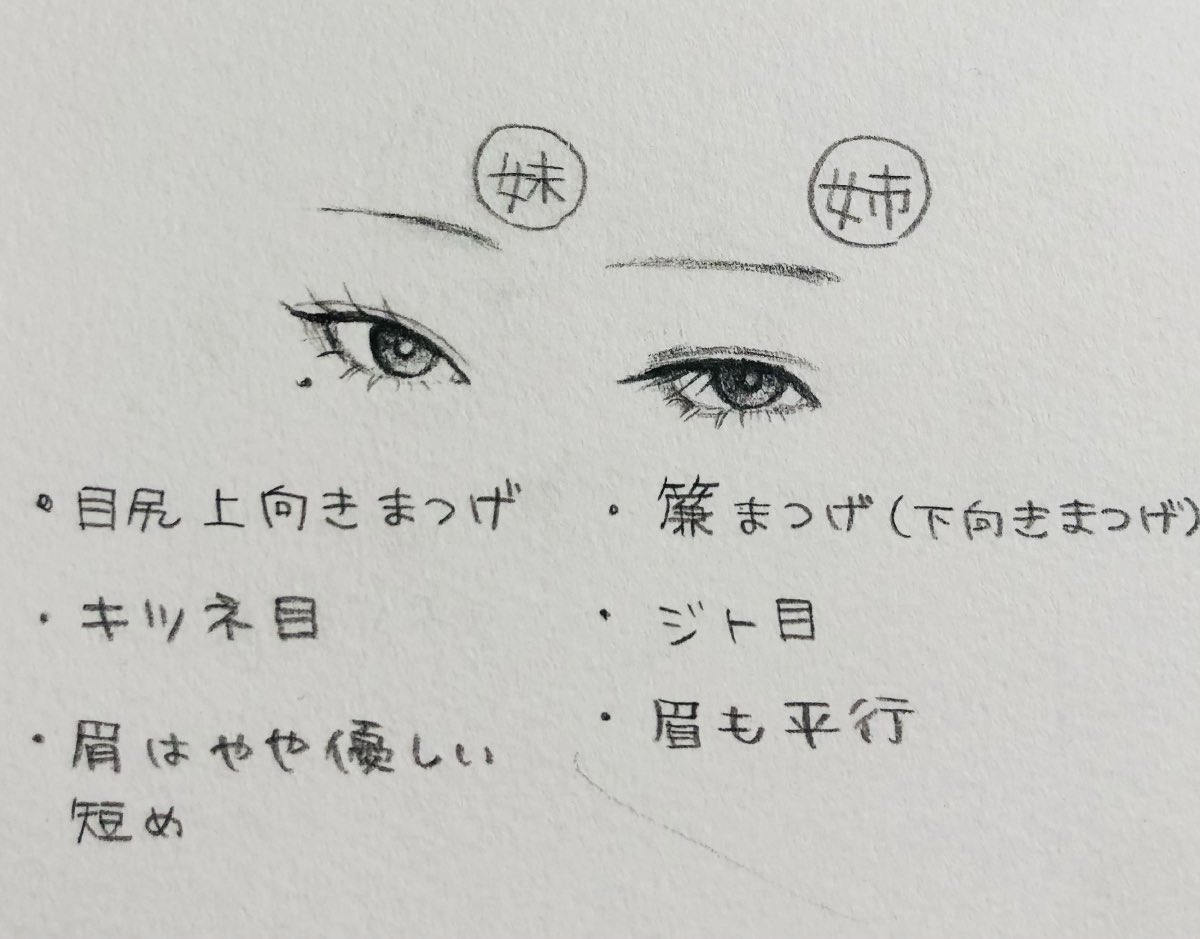 妹
姉
・目尻上向きまつげ
・キツネ目
・眉はやや優しい
短め
・簾まつげ(下向きまつげ)
・ジト目
・眉も平行